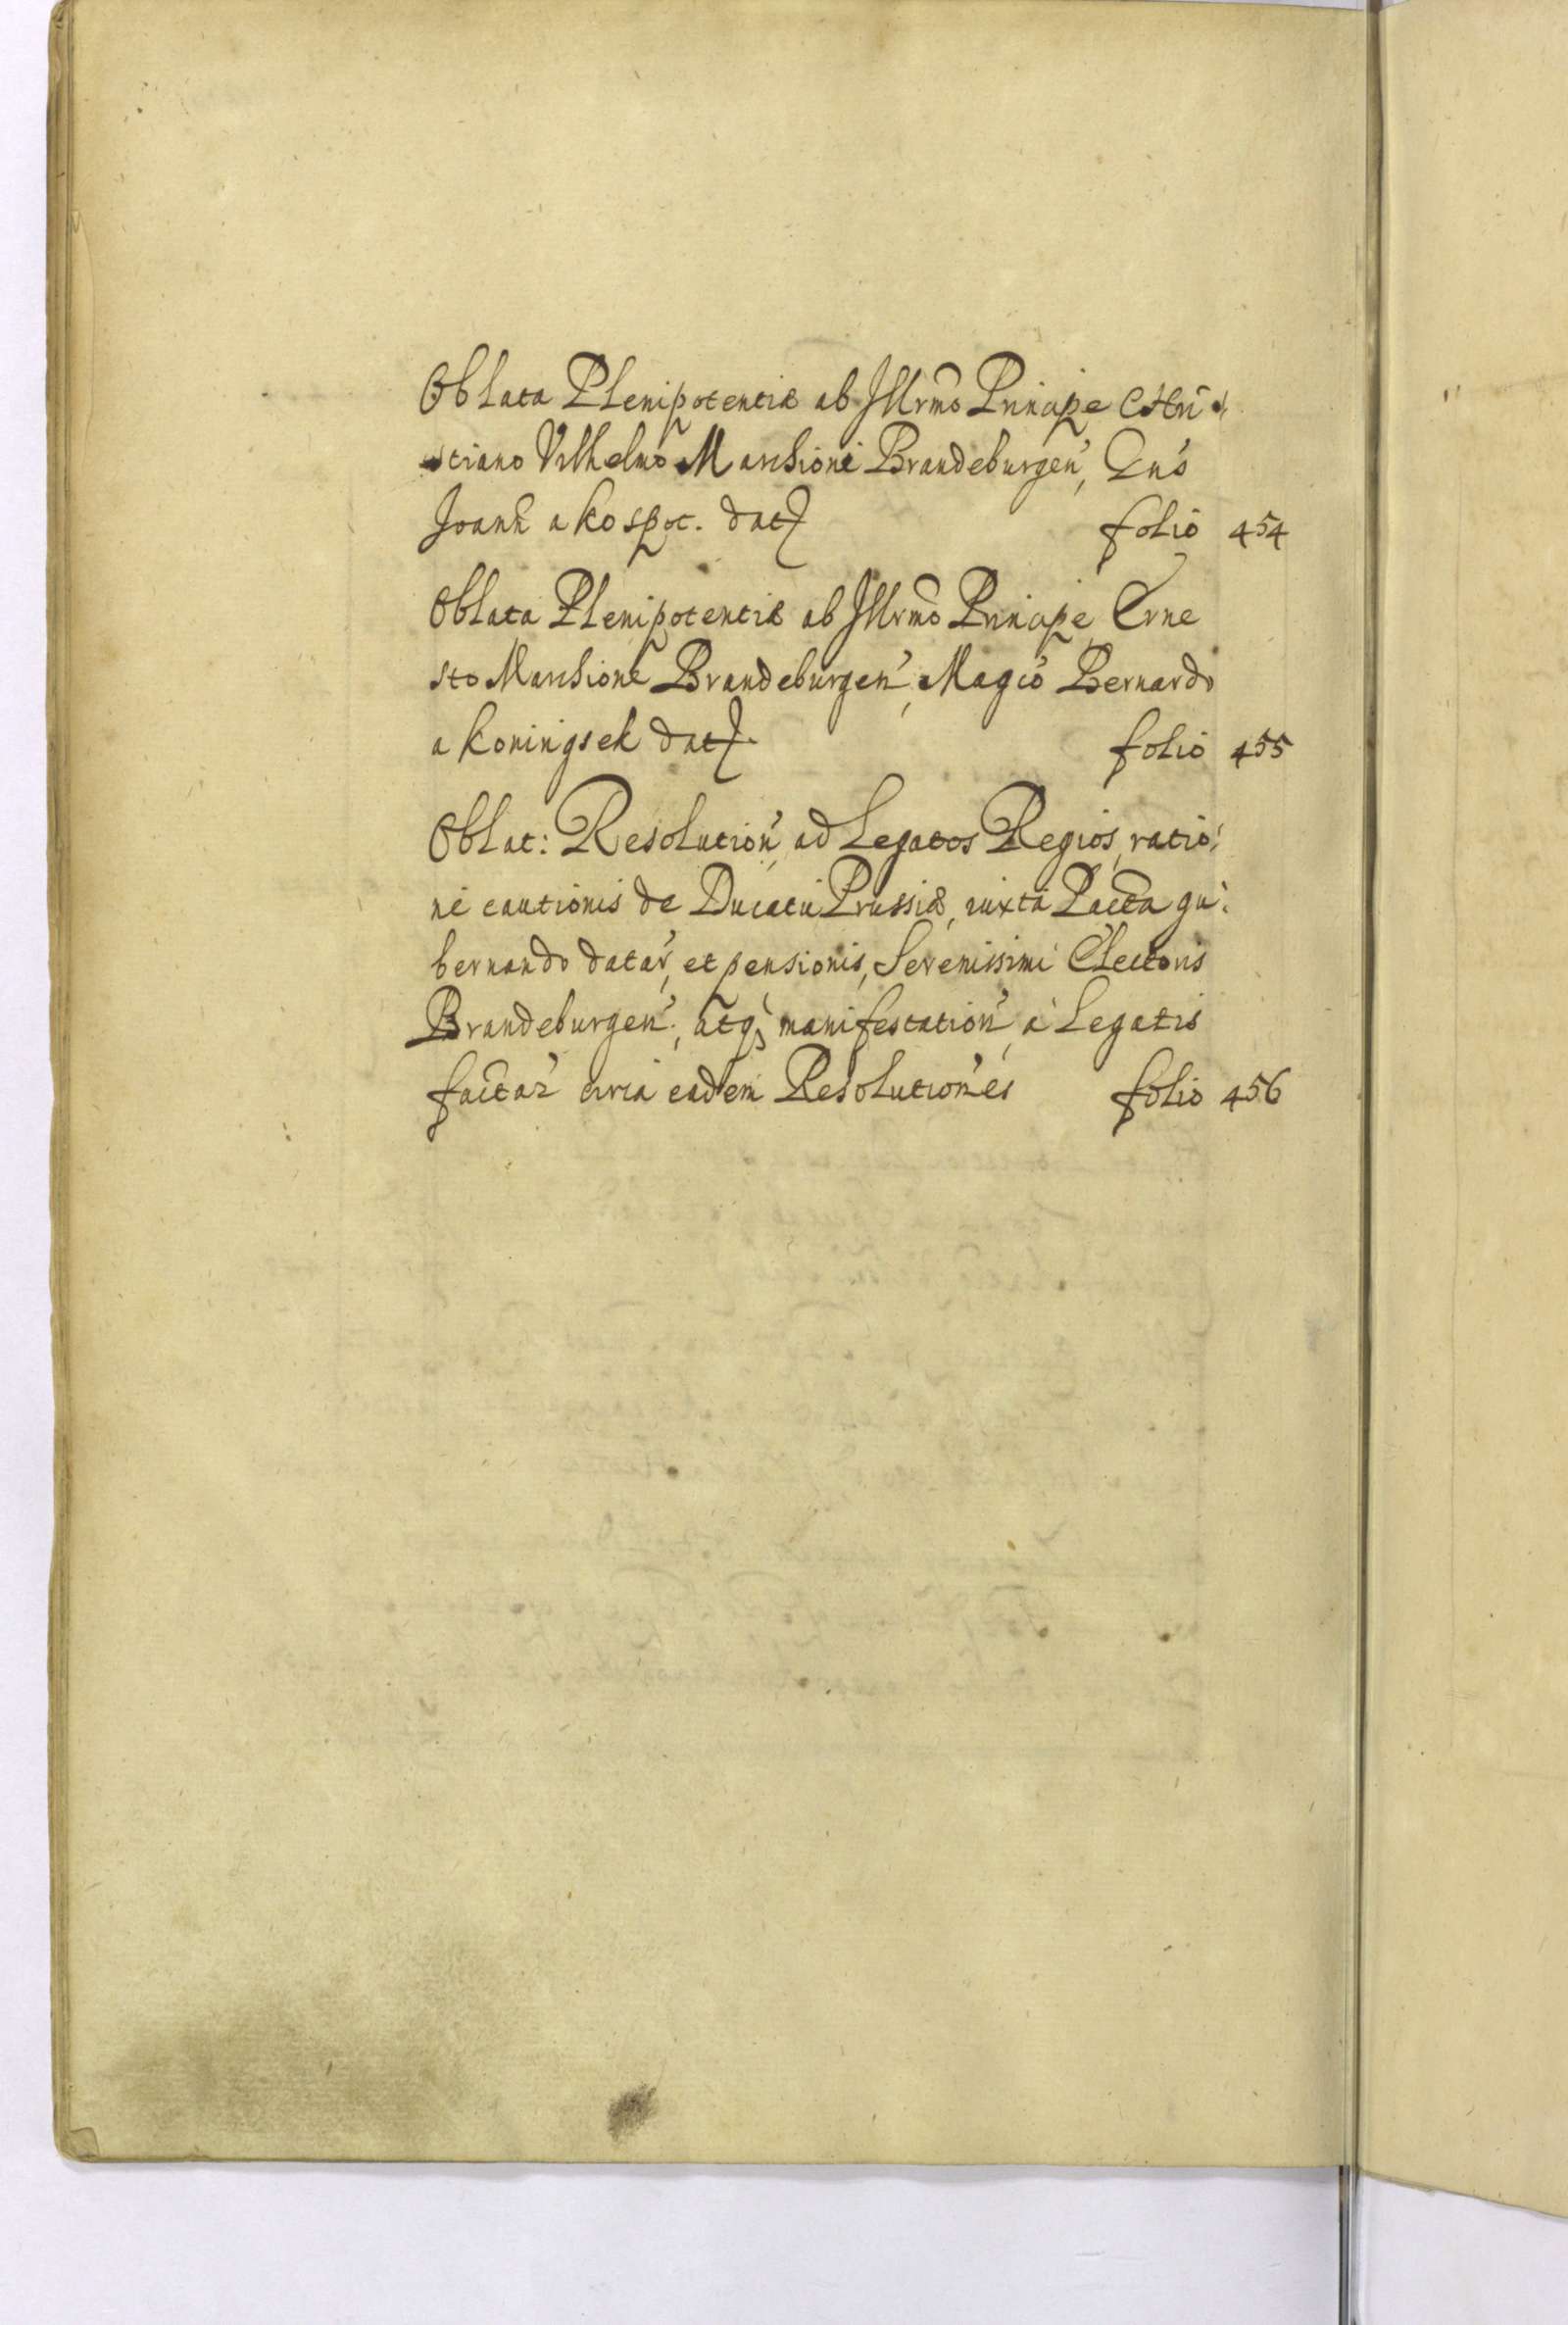 Oblata Plenipotentiæ ab Illrmo Principe Chri-
stiano Vilhelmo Marchione Brandeburgen,
Joann a Kospot. datæ folio 454
Oblata Plenipotentiæ ab Illrmo Principe Erne
sto Marchione Brandeburgen, Magco Bernardo
a Koningsek datæ. folio 455
Oblat: Resolution ad Legatos Regios, ratio:
ne cautionis de Ducatu Prussiæ, iuxta Pacta gu:
bernando datar, et pensionis, Serenissimi Electoris
Brandeburgen, atq; manifestation, a Legatis
factar circa eadem Resolutiones folio 456